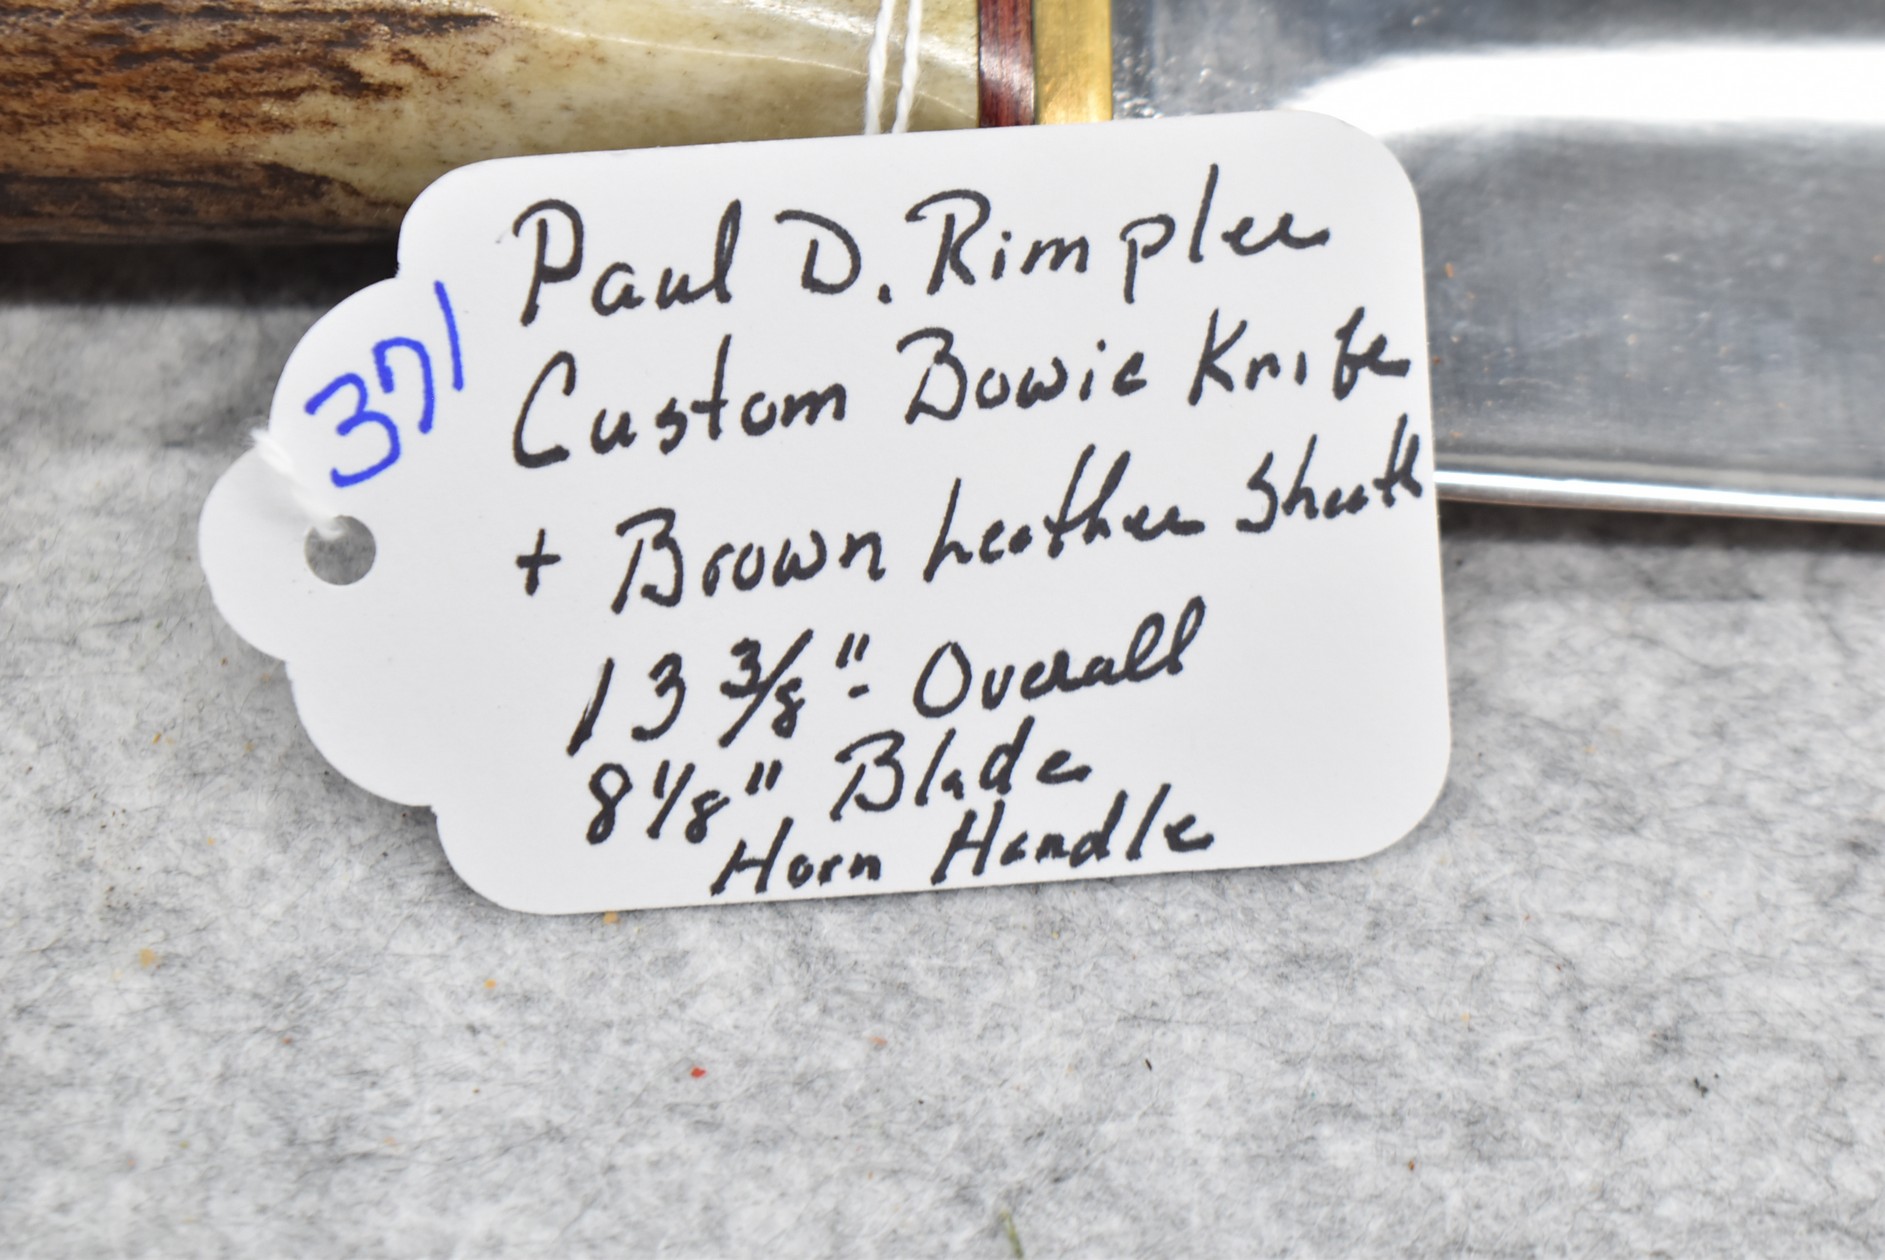 371
Paul D. Rimpler
Custom Bowie Knife
+ Brown Leather Sheath
13 3/8" - Overall
8 1/8" Blade
Horn Handle